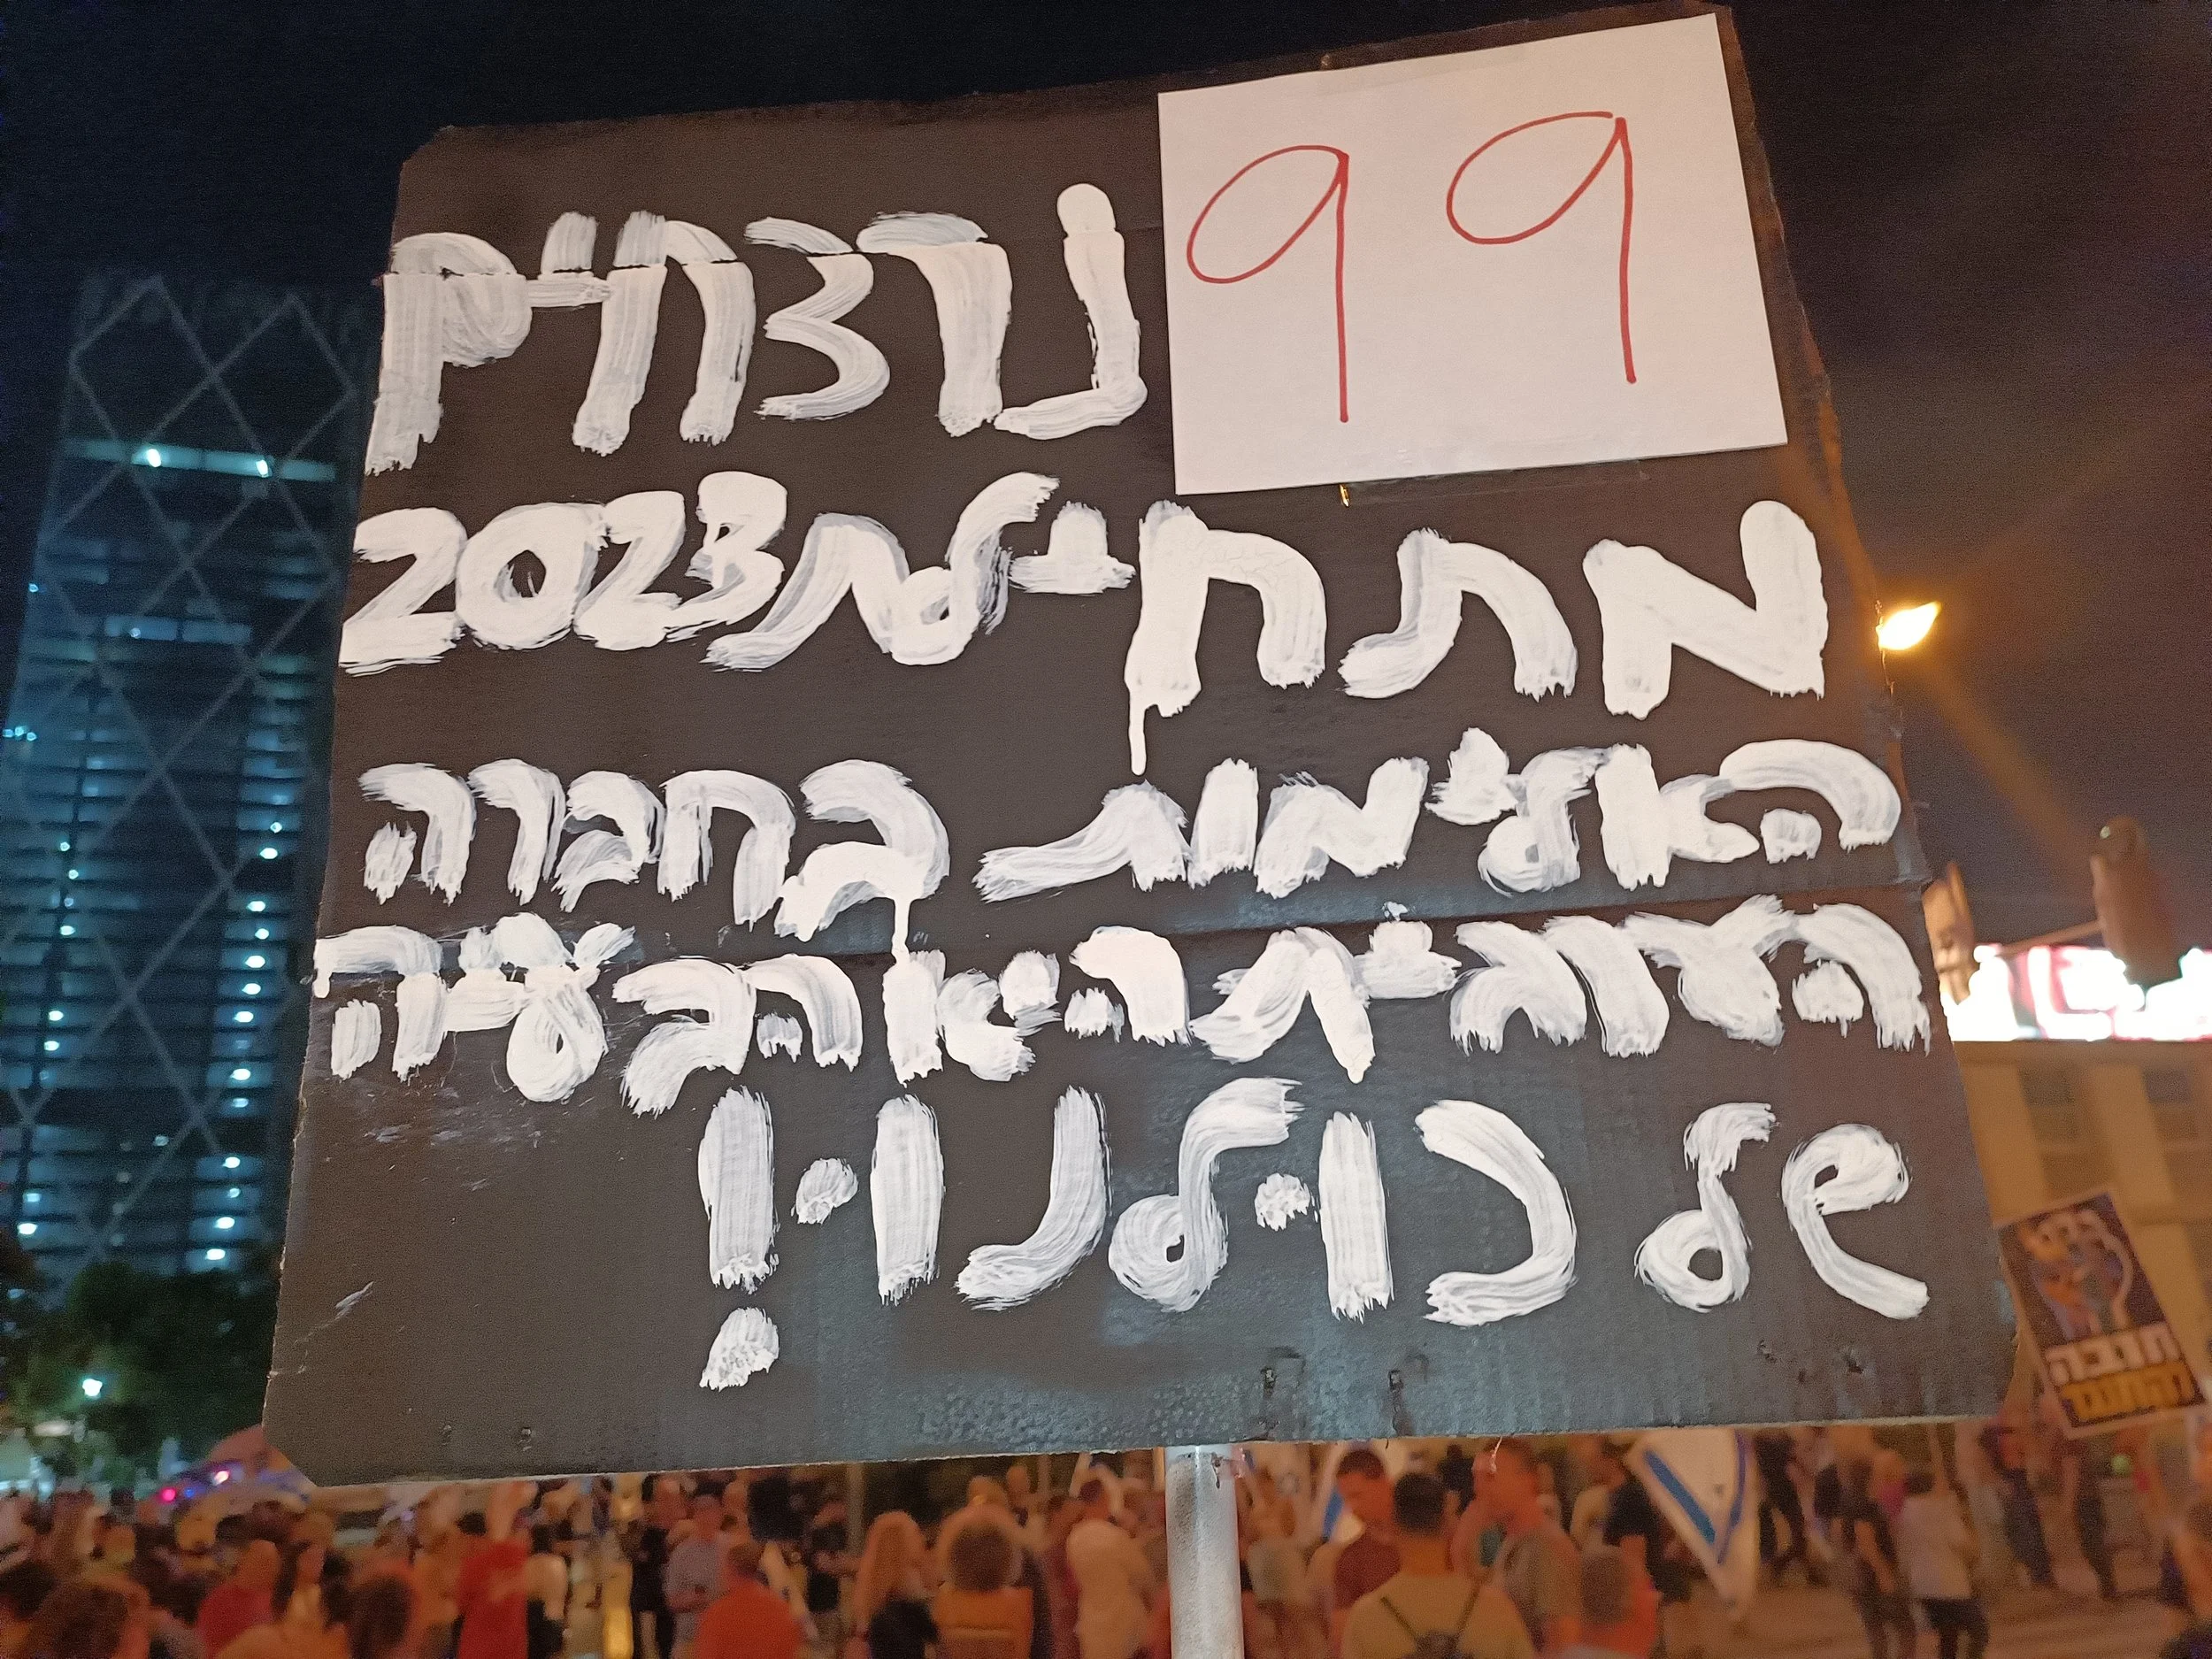 99 נרצחים
מתחילת 2023
האלימות בחברה
הערבית היא הבעיה
של כולנו!